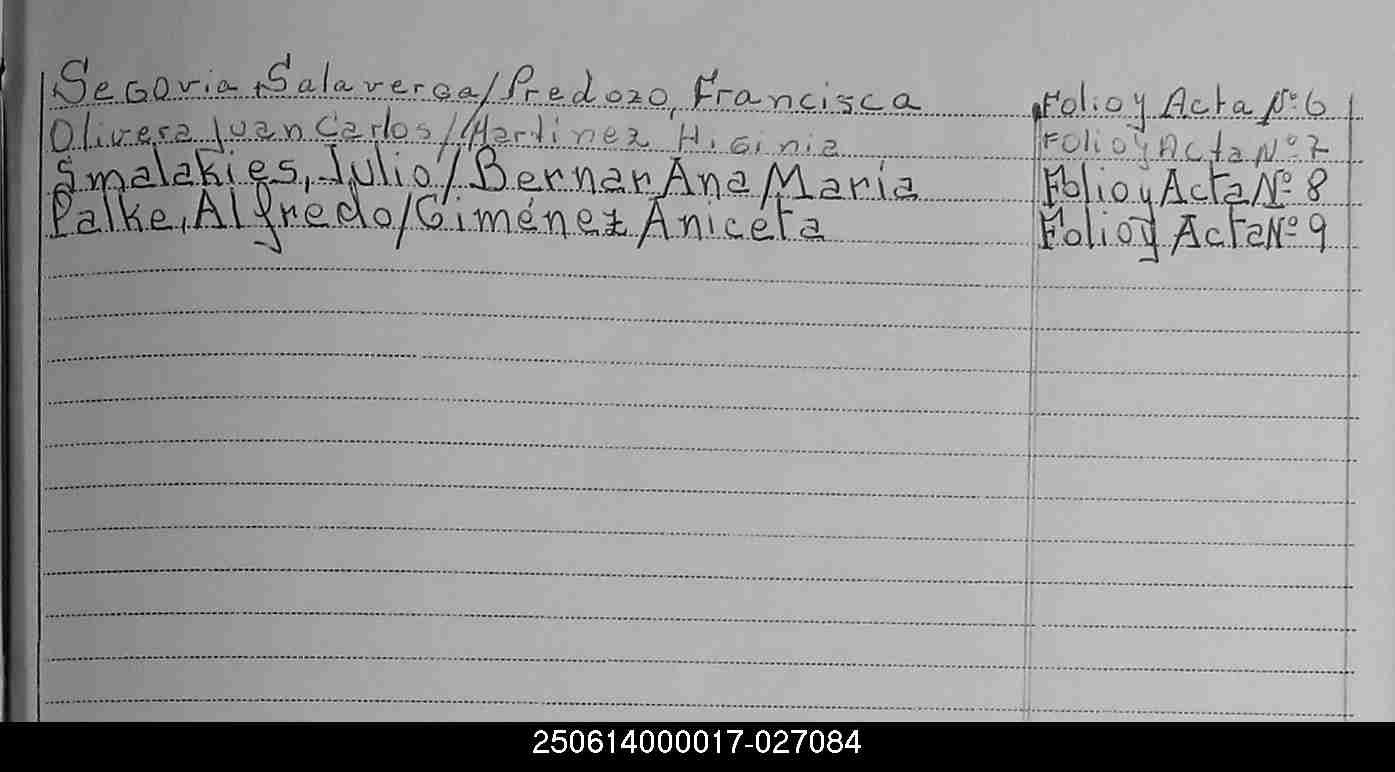 Segovia, Salaverga/Predozo, Francisca Folio y Acta Nº 6
Olivera Juan Carlos/Martinez Higinia Folio y Acta Nº 7
Smalakies, Julio/Bernar Ana María Folio y Acta Nº 8
Palke, Alfredo/Giménez Aniceta Folio y Acta Nº 9
250614000017-027084